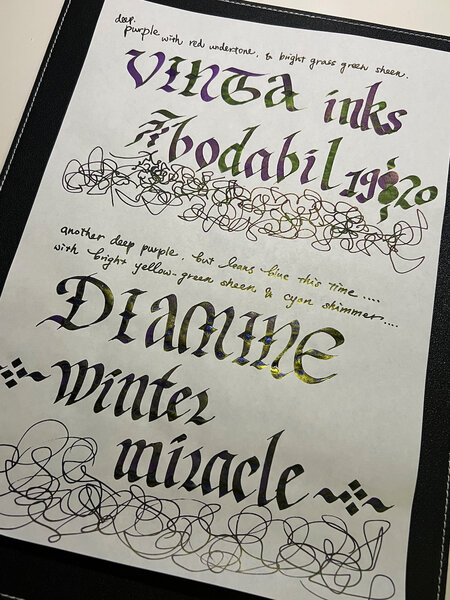 deep.
purple with red undertone, & bright grass green sheen.
VINTA inks
bodabil 1920
another deep purple. but leans blue this time ....
with bright yellow-green sheen & cyan shimmers....
DIAMINE
winter
miracle